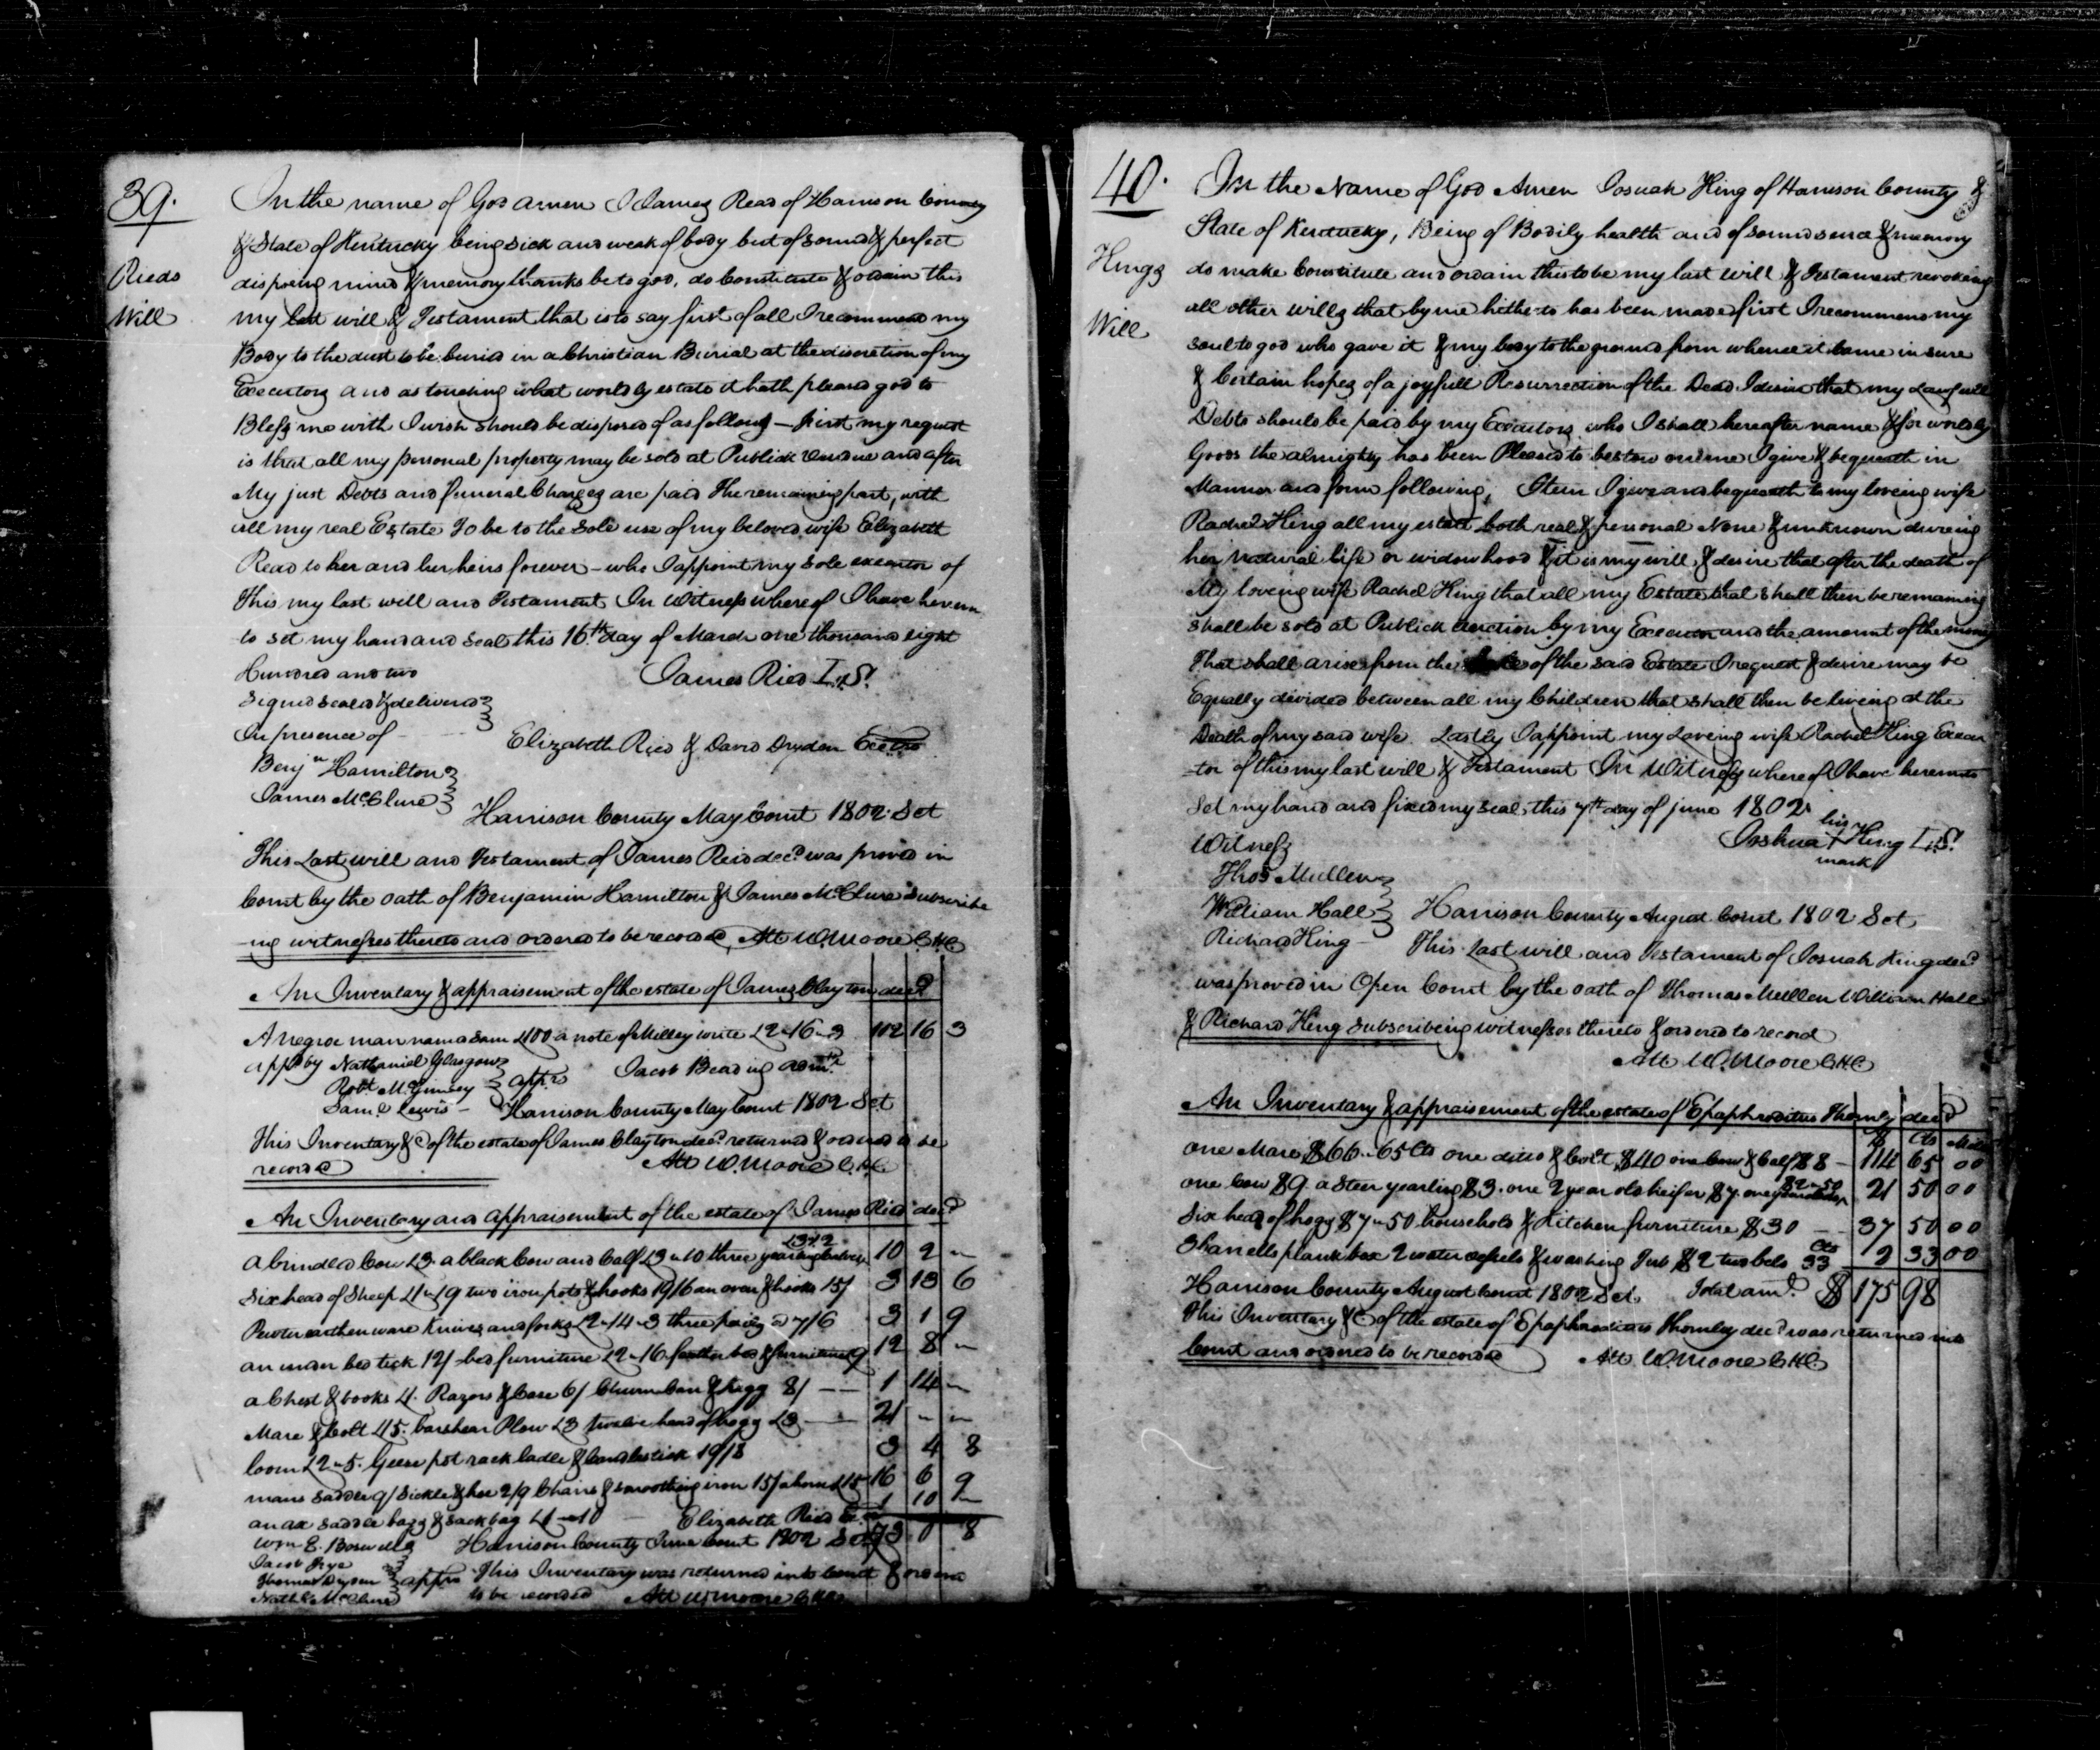 39.
Rieds
Will
In the name of God amen I James Read of Harrison County
& State of Kentucky being sick and weak of body but of sound & perfect
disposing mind & memory thanks be to god, do Constitute & ordain this
my last will & Testament that is to say first of all I recommend my
Body to the dust to be buried in a Christian Burial at the discretion of my
Executors and as touching what worldly estate it hath pleased god to
Bless me with I wish should be disposed of as follows — first my request
is that all my personal property may be sold at Publick Vendue and after
My just Debts and funeral Charges are paid The remaining part, with
all my real Estate To be to the Sole use of my beloved wife Elizabeth
Read to her and her heirs forever – who I appoint my Sole executor of
this my last will and Testament In Witness whereof I have hereun
to set my hand and Seal this 16th day of March one thousand eight
Hundred and two
James Ried L.S.
Signed sealed & delivered
In presence of
Elizabeth Ried & David Dryden
Benjn Hamilton
James McClure
Harrison County May Court 1802 Sct
This Last will and Testament of James Reid decd was proved in
Court by the oath of Benjamin Hamilton & James McClure Subscribe
-ing witnesses thereto and ordered to be recorded, Att W. Moore C.H.C.
An Inventory & appraisement of the estate of James Clayton decd
A negroe man named Sam £100 a note of Milley £2"16"3 102 16 3
appd by Nathaniel Glasgow
Jacob admr
Robt McGimsey apprs
Saml Lewis – Harrison County May Court 1802 Sct
This Inventory &c of the estate of James Clayton decd returned & ordered to be
recorded Att W. Moore C.H.C.
An Inventory and appraisement of the estate of James Ried decd
a brindled Cow £3. a black Cow and Calf £3"10 three yearling £3"12 10 2 "
Six head of Sheep £1"19 two iron pots & hooks 19/6 an oven & hooks 15/ 3 13 6
Pewter earthenware Knives and forks £2"14"3 three 7/6 3 1 9
an bed tick 12/ bed furniture £2"16 feather bed & furniture 9 12 8 "
a Chest & books £1. Razors & Case 6/ Churn Can & 8/ 1 14 "
Mare & Colt £15. barshear Plow £3 twelve head of hogs £3 21 " "
loom £2"5. Geese pot rack ladle & Candlestick 19/8 3 4 8
mans Saddle 9/ Sickle & hoe 2/9 Chairs & smoothing iron 15/ a horse £15 16 6 9
an ax saddle bags & sack bag £1"10 1 10 "
Elizabeth Ried
Wm E. Boswell Harrison County June Court 1802 Sct 73 0 8
Jacob Frye
Thomas Dryden apprs This Inventory was returned into Court & ordered
Nathl McClure to be recorded Att W. Moore C.H.C.
40.
Kings
Will
In the Name of God Amen Josuah King of Harrison County &
State of Kentucky, Being of Bodily health and of sound sence & memory
do make Constitute and ordain this to be my last Will & Testament revoking
all other wills that by me hitherto has been made first I recommend my
soul to god who gave it & my body to the ground from whence it came in sure
& Certain hopes of a joyfull Resurrection of the Dead. I desire that my Lawfull
Debts should be paid by my Executors who I shall hereafter name & for worldly
Goods the almighty has been Pleased to bestow on me I give & bequeath in
Manner and form following, Item I give and bequeath to my loveing wife
Rachel King all my estate both real & personal None & unknown dureing
her natural life or widowhood & it is my will & desire that after the death of
My loveing wife Rachel King that all my Estate that shall then be remaining
shall be sold at Publick auction by my Executor and the amount of the money
That shall arise from the of the said Estate I request & desire may be
Equally divided between all my Children that shall then be liveing at the
Death of my said wife. Lastly I appoint my Loveing wife Rachel King Execu
-tor of this my last will & Testament In Witness whereof I have hereunto
Set my hand and fixed my seal this 7th day of june 1802
his
Joshua + King L.S.
mark
Witness
Thos Mullen
William Hall
Richard King
Harrison County August Court 1802 Sct
This Last will and Testament of Josuah King decd
was proved in Open Court by the oath of Thomas Mullen William Hall
& Richard King Subscribeing witnesses thereto & ordered to record
Att W. Moore C.H.C.
An Inventory & appraisement of the estate of Epaphroditus Thornly decd
$ Cts Mills
one Mare $66"65 Cts one ditto & Colt $40 one Cow & Calf $8 – 114 65 00
one Cow $9. a Steer yearling $3. one 2 year old heifer $7. one $2"50 21 50 00
Six head of hogs $7"50 household & Kitchen furniture $30 37 50 00
plank box 2 water vessels & washing Tub $2 two 33 Cts 2 33 00
Harrison County August Court 1802 Sct. Total amt. $ 175 98
This Inventory &c of the estate of Epaphroditus Thornley decd was returned into
Court and ordered to be recorded Att W. Moore C.H.C.